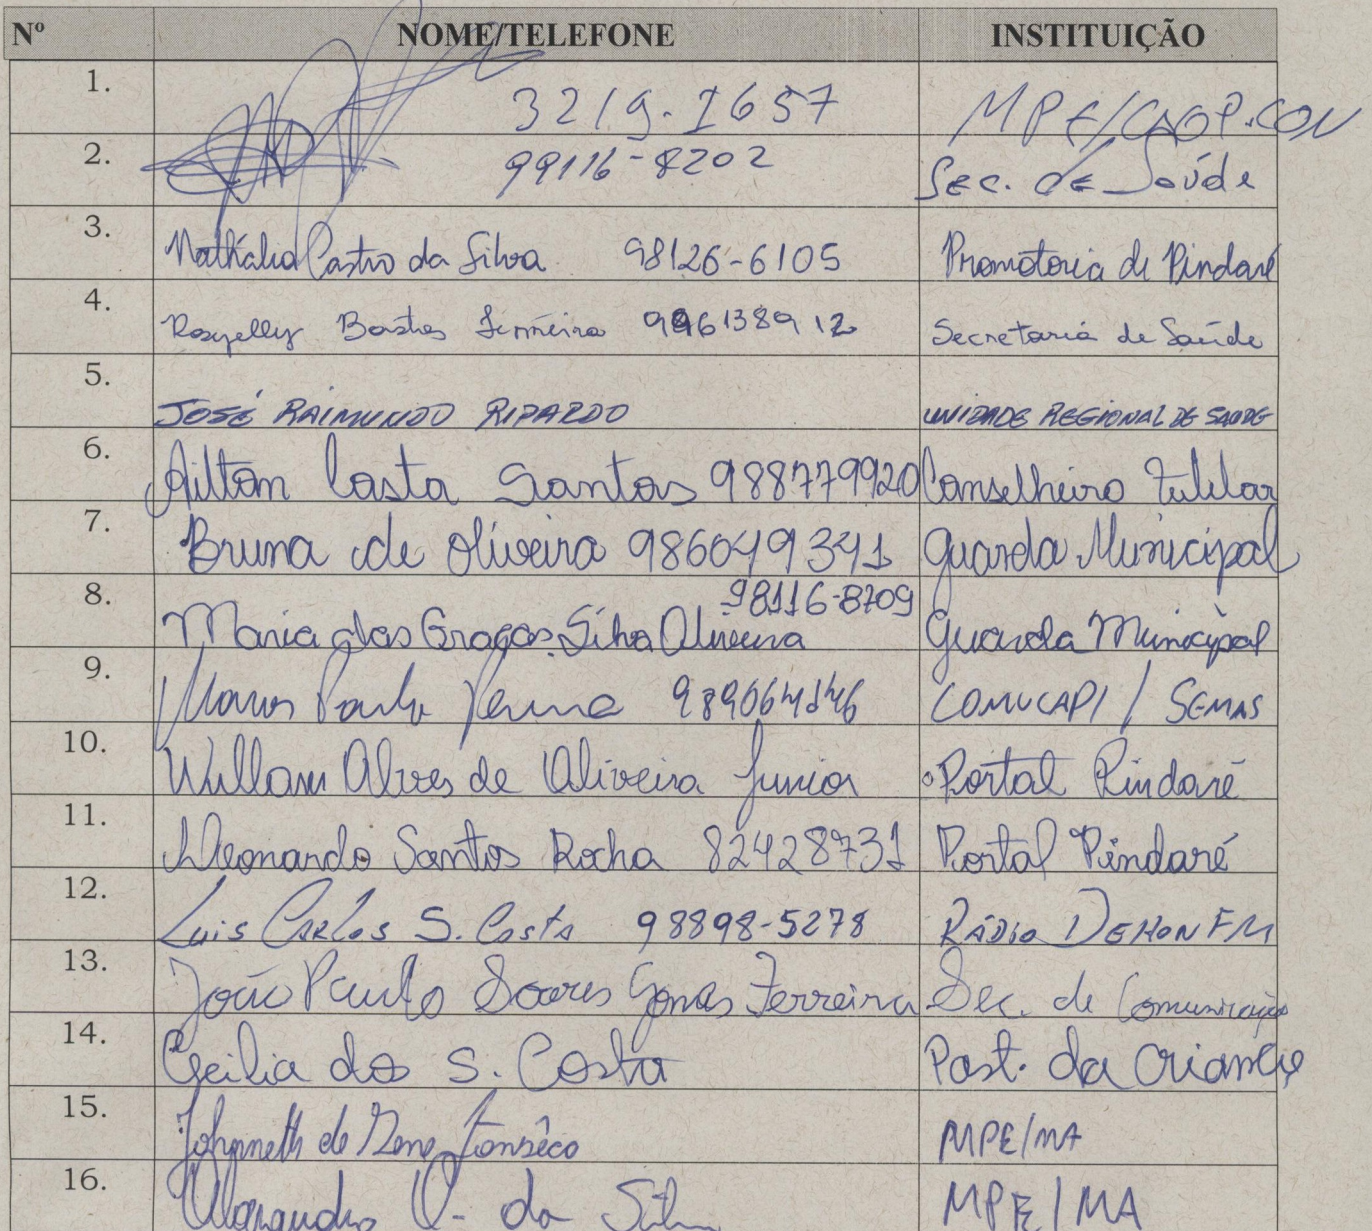 Nº NOME/TELEFONE INSTITUIÇÃO
1. 3219-1657 MPE/CAOP.CON
2. 99116-8202 Sec. de Saúde
3. Nathália Castro da Silva 98126-6105 Promotoria de Pindaré
4. Bastos 996138912 Secretaria de Saúde
5. JOSÉ RAIMUNDO RIPARDO UNIDADE REGIONAL DE SAÚDE
6. Ailton Costa Santos 988779920 Conselheiro Tutelar
7. Bruna de Oliveira 986049341 Guarda Municipal
98116-8709
8. Maria das Graças Silva Oliveira Guarda Municipal
9. COMUCAPI / SEMAS
10. Alves de Oliveira Junior Portal Pindaré
11. Santos Rocha 82428731 Portal Pindaré
12. Luis Carlos S. Costa 98898-5278 RÁDIO DEMON FM
13. João Paulo Soares Ferreira Sec. de Comunicação
14. Cecilia dos S. Costa Past. da Criança
15. MPE/MA
16. da MPE/MA